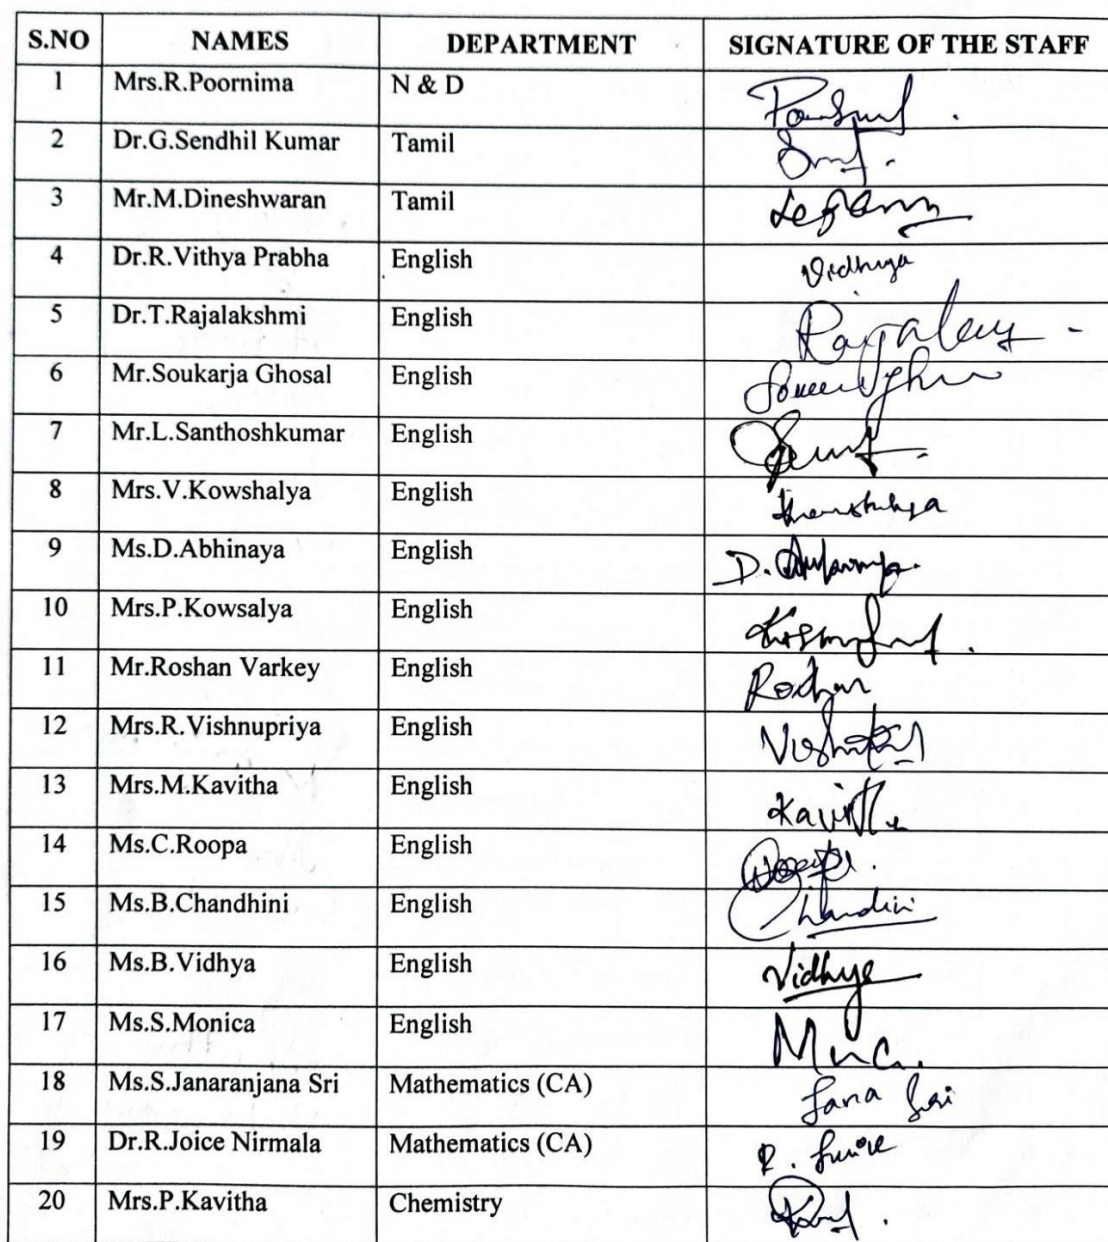 S.NO NAMES DEPARTMENT SIGNATURE OF THE STAFF
1 Mrs.R.Poornima N & D
2 Dr.G.Sendhil Kumar Tamil
3 Mr.M.Dineshwaran Tamil
4 Dr.R.Vithya Prabha English Vidhya
5 Dr.T.Rajalakshmi English
6 Mr.Soukarja Ghosal English
7 Mr.L.Santhoshkumar English
8 Mrs.V.Kowshalya English
9 Ms.D.Abhinaya English D.
10 Mrs.P.Kowsalya English
11 Mr.Roshan Varkey English Roshan
12 Mrs.R.Vishnupriya English
13 Mrs.M.Kavitha English
14 Ms.C.Roopa English
15 Ms.B.Chandhini English Chandini
16 Ms.B.Vidhya English Vidhya
17 Ms.S.Monica English
18 Ms.S.Janaranjana Sri Mathematics (CA) Jana Sri
19 Dr.R.Joice Nirmala Mathematics (CA)
20 Mrs.P.Kavitha Chemistry